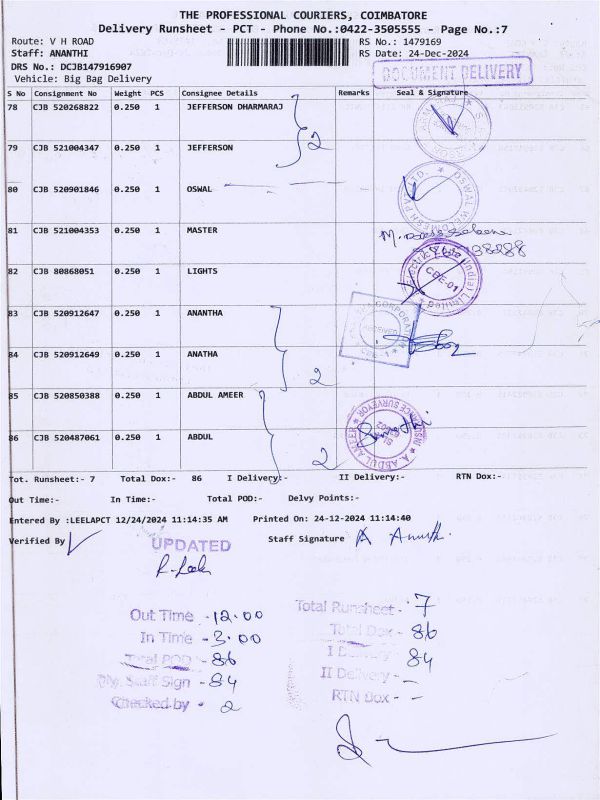 THE PROFESSIONAL COURIERS, COIMBATORE
Delivery Runsheet - PCT - Phone No.:0422-3505555 - Page No.:7
Route: V H ROAD
RS No.: 1479169
Staff: ANANTHI
RS Date: 24-Dec-2024
DRS No.: DCJB147916907
Vehicle: Big Bag Delivery
DOCUMENT DELIVERY
S No Consignment No Weight PCS Consignee Details Remarks Seal & Signature
78 CJB 520268822 0.250 1 JEFFERSON DHARMARAJ
2
79 CJB 521004347 0.250 1 JEFFERSON
80 CJB 520901846 0.250 1 OSWAL
81 CJB 521004353 0.250 1 MASTER
82 CJB 80868051 0.250 1 LIGHTS
(India) Limited
CBE-01
83 CJB 520912647 0.250 1 ANANTHA
CORPORATION
RECEIVED
84 CJB 520912649 0.250 1 ANATHA
2
85 CJB 520850388 0.250 1 ABDUL AMEER
A. ABDUL AMEER
86 CJB 520487061 0.250 1 ABDUL
2
Tot. Runsheet:- 7 Total Dox:- 86 I Delivery:- II Delivery:- RTN Dox:-
Out Time:- In Time:- Total POD:- Delvy Points:-
Entered By :LEELAPCT 12/24/2024 11:14:35 AM Printed On: 24-12-2024 11:14:40
Verified By
Staff Signature
UPDATED
Out Time - 12.00
In Time - 3.00
Total POD - 86
Staff Sign - 84
Checked by - 2
Total Runsheet - 7
Total Dox - 86
I Delivery - 84
II Delivery - -
RTN Dox - -